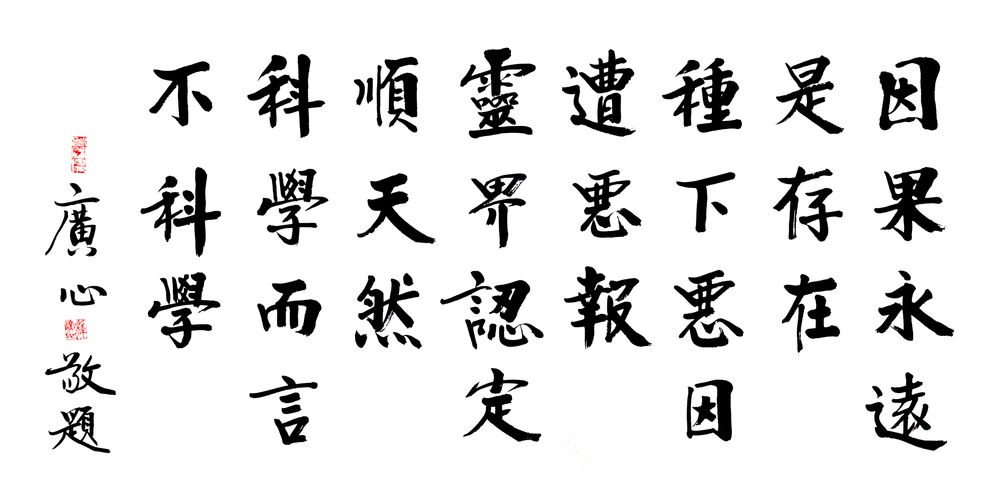 因果永遠
是存在
種下惡因
遭惡報
靈界認定
順天然
科學而言
不科學
廣心敬題